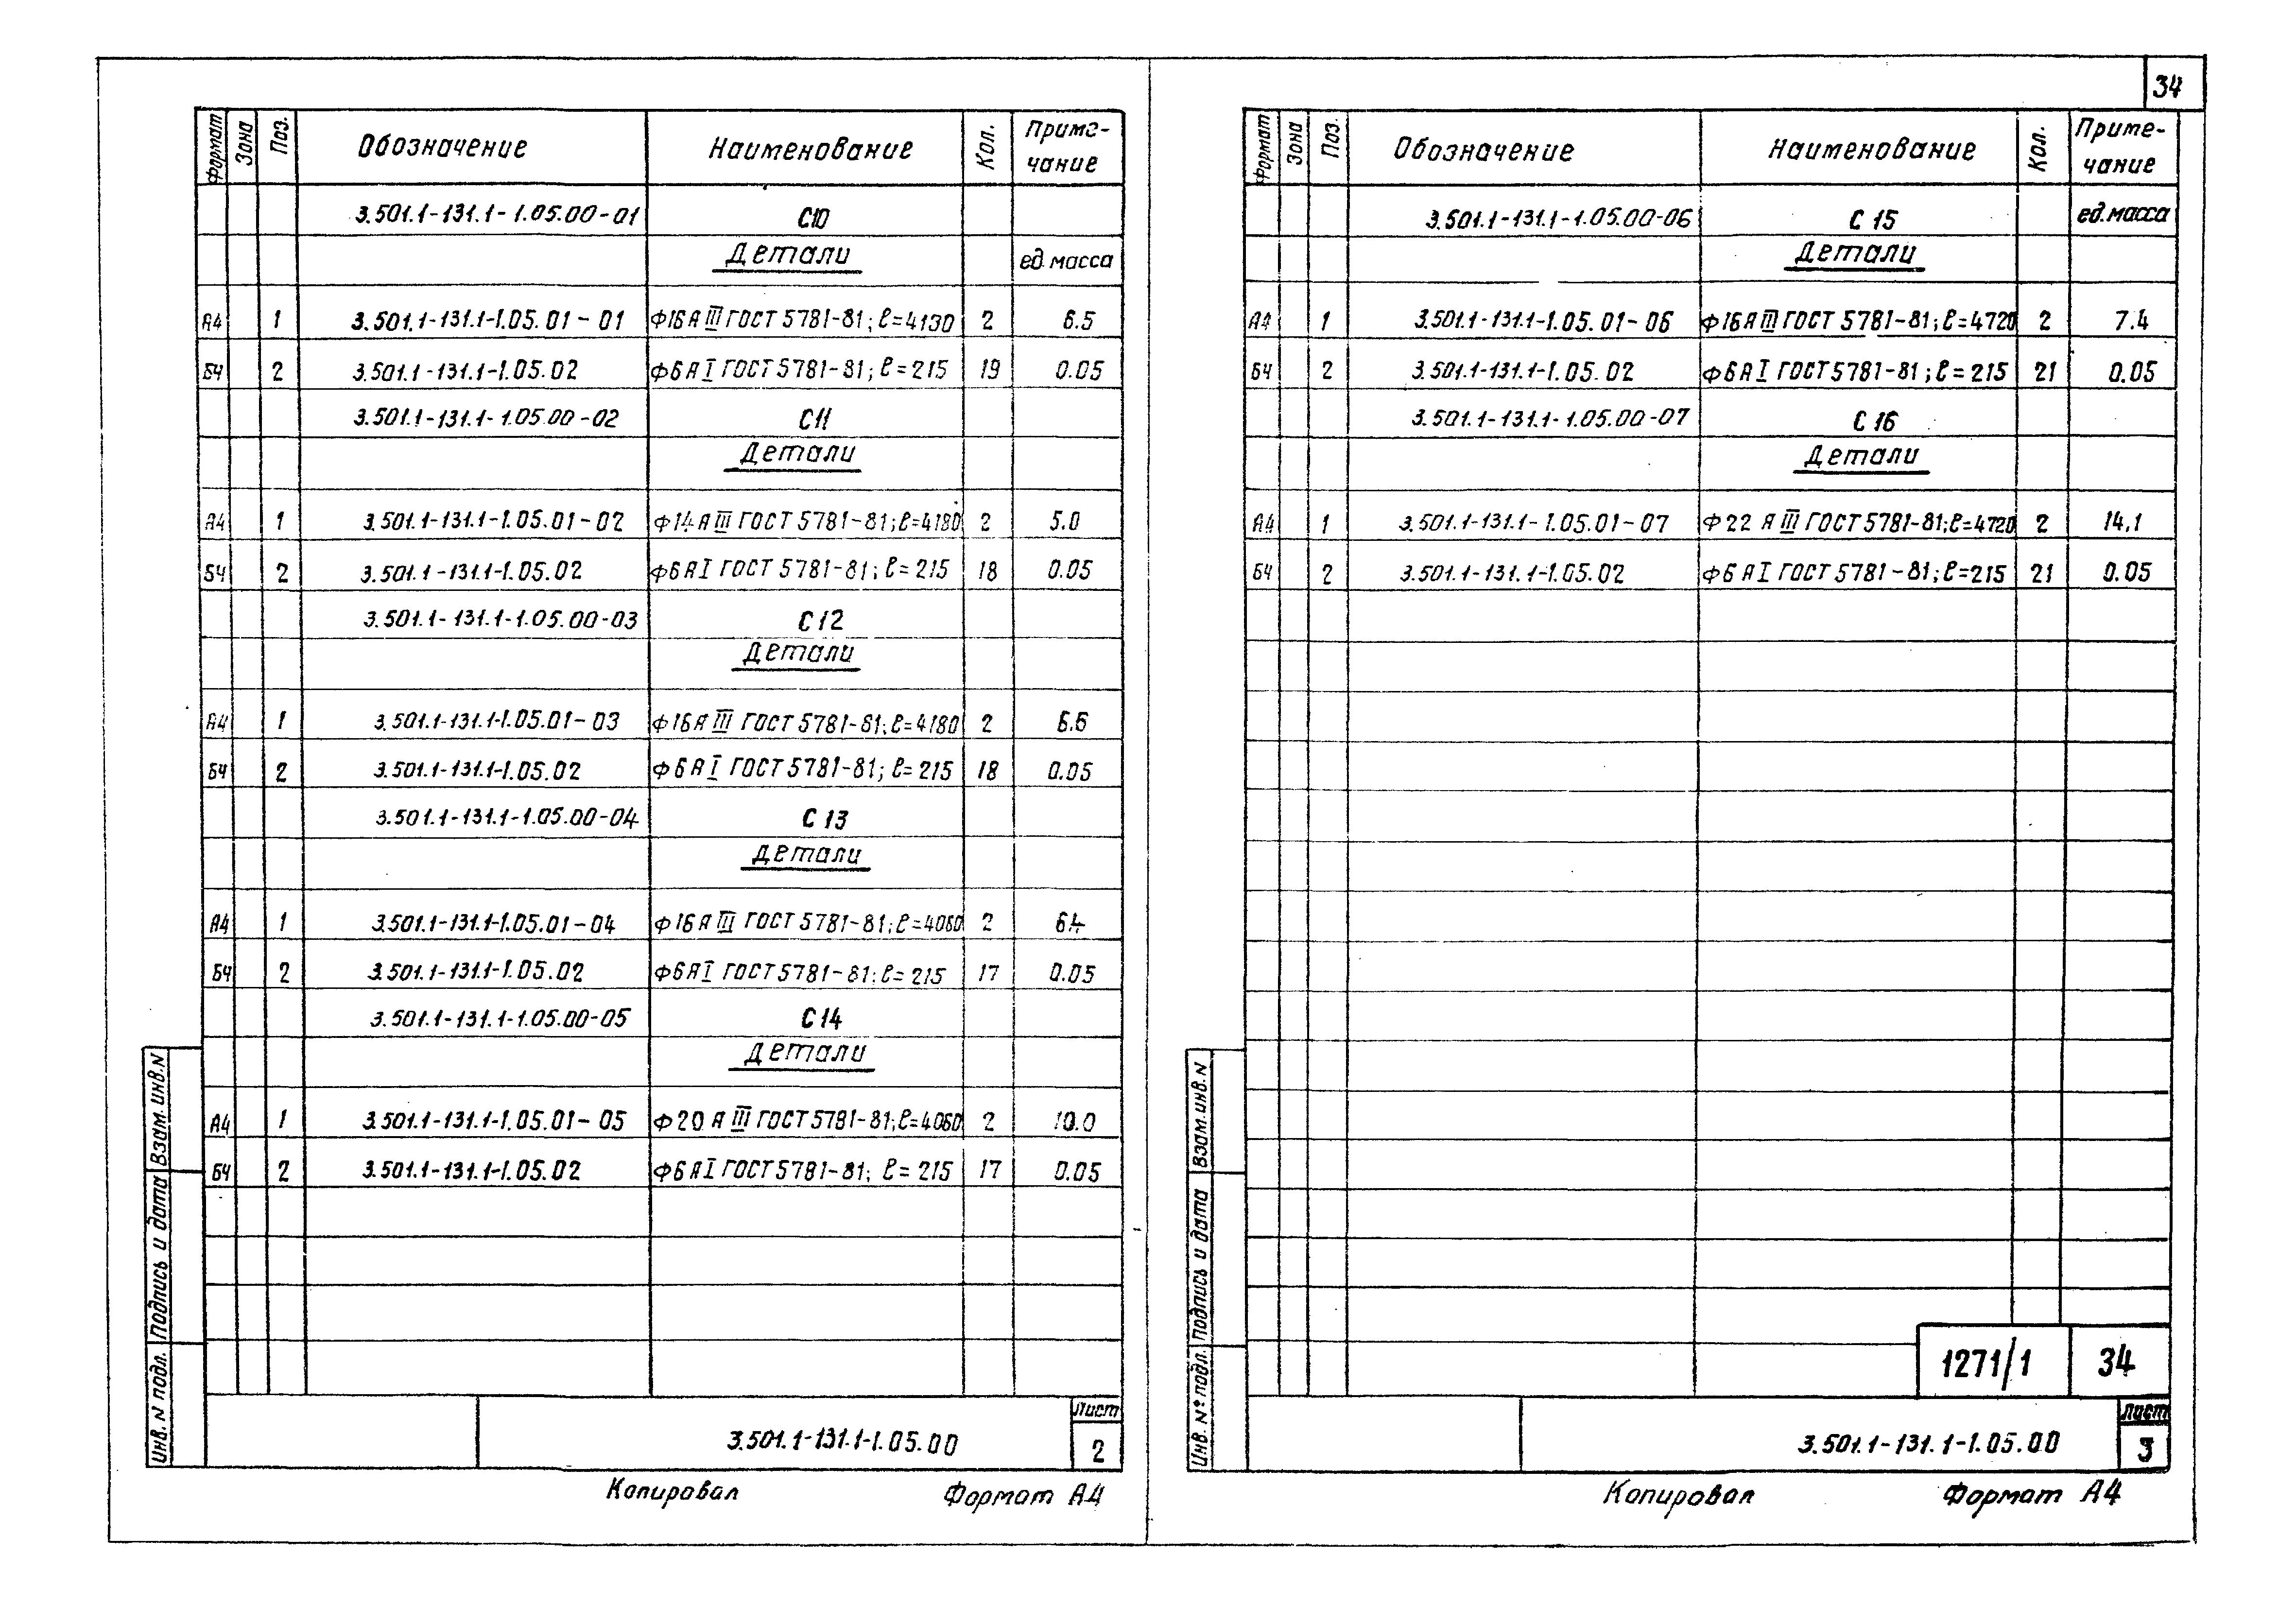 34
Формат Зона Поз. Обозначение Наименование Кол. Приме-
чание
3.501.1-131.1-1.05.00-01 С10
Детали ед. масса
А4 1 3.501.1-131.1-1.05.01-01 Ф16АIII ГОСТ 5781-81; ℓ=4130 2 6.5
БЧ 2 3.501.1-131.1-1.05.02 Ф6АI ГОСТ 5781-81; ℓ=215 19 0.05
3.501.1-131.1-1.05.00-02 С11
Детали
А4 1 3.501.1-131.1-1.05.01-02 Ф14АIII ГОСТ 5781-81; ℓ=4180 2 5.0
БЧ 2 3.501.1-131.1-1.05.02 Ф6АI ГОСТ 5781-81; ℓ=215 18 0.05
3.501.1-131.1-1.05.00-03 С12
Детали
А4 1 3.501.1-131.1-1.05.01-03 Ф16АIII ГОСТ 5781-81; ℓ=4180 2 6.6
БЧ 2 3.501.1-131.1-1.05.02 Ф6АI ГОСТ 5781-81; ℓ=215 18 0.05
3.501.1-131.1-1.05.00-04 С13
Детали
А4 1 3.501.1-131.1-1.05.01-04 Ф16АIII ГОСТ 5781-81; ℓ=4060 2 6.4
БЧ 2 3.501.1-131.1-1.05.02 Ф6АI ГОСТ 5781-81; ℓ=215 17 0.05
3.501.1-131.1-1.05.00-05 С14
Детали
А4 1 3.501.1-131.1-1.05.01-05 Ф20АIII ГОСТ 5781-81; ℓ=4060 2 10.0
БЧ 2 3.501.1-131.1-1.05.02 Ф6АI ГОСТ 5781-81; ℓ=215 17 0.05
Инв. N подл. Подпись и дата Взам. инв. N
3.501.1-131.1-1.05.00
Лист
2
Копировал Формат А4
Формат Зона Поз. Обозначение Наименование Кол. Приме-
чание
3.501.1-131.1-1.05.00-06 С15 ед. масса
Детали
А4 1 3.501.1-131.1-1.05.01-06 Ф16АIII ГОСТ 5781-81; ℓ=4720 2 7.4
БЧ 2 3.501.1-131.1-1.05.02 Ф6АI ГОСТ 5781-81; ℓ=215 21 0.05
3.501.1-131.1-1.05.00-07 С16
Детали
А4 1 3.501.1-131.1-1.05.01-07 Ф22АIII ГОСТ 5781-81; ℓ=4720 2 14.1
БЧ 2 3.501.1-131.1-1.05.02 Ф6АI ГОСТ 5781-81; ℓ=215 21 0.05
Инв. № подл. Подпись и дата Взам. инв. N
1271/1 34
3.501.1-131.1-1.05.00
Лист
3
Копировал Формат А4